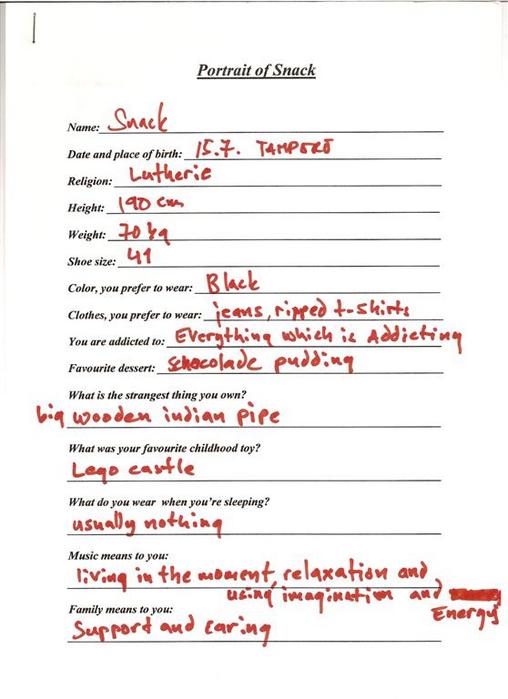 Portrait of Snack
Name: Snack
Date and place of birth: 15.7. TAMPERE
Religion: Lutherie
Height: 190 cm
Weight: 70 kg
Shoe size: 41
Color, you prefer to wear: Black
Clothes, you prefer to wear: jeans, ripped t-shirts
You are addicted to: Everything which is Addicting
Favourite dessert: schocolade pudding
What is the strangest thing you own?
big wooden indian pipe
What was your favourite childhood toy?
Lego castle
What do you wear when you're sleeping?
usually nothing
Music means to you:
living in the moment, relaxation and
using imagination and
Energy
Family means to you:
Support and caring